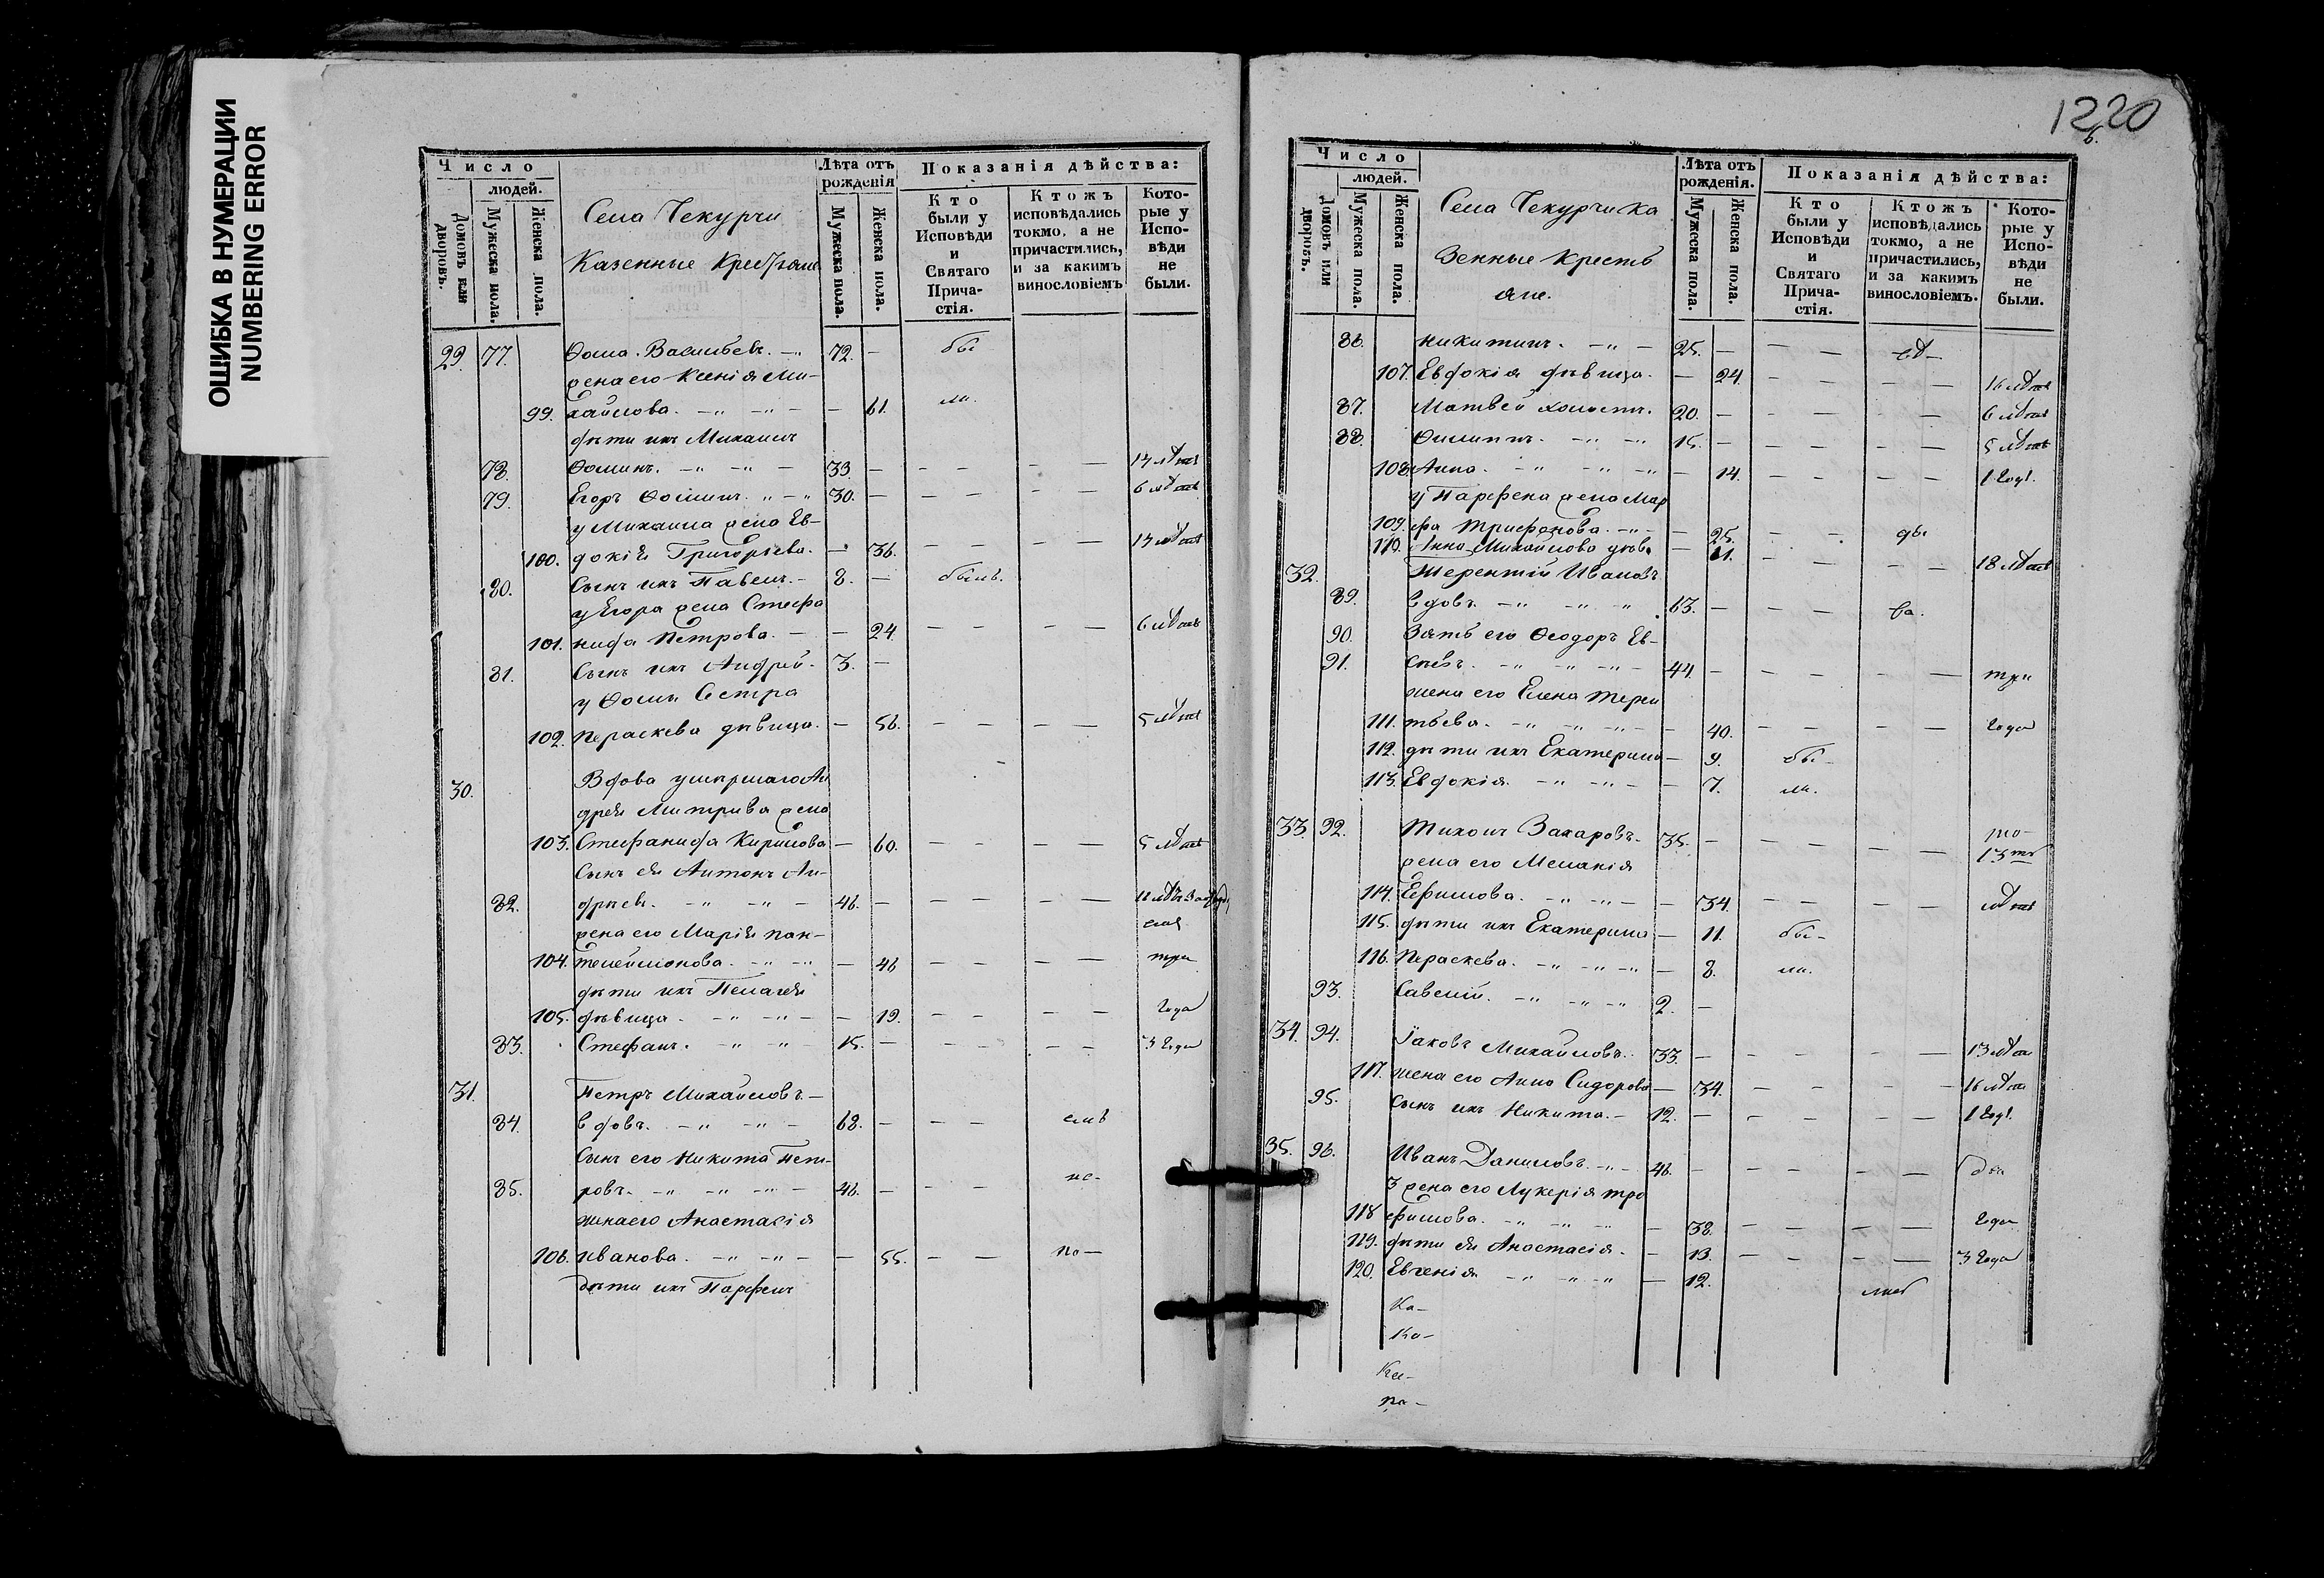 ОШИБКА В НУМЕРАЦИИ
NUMBERING ERROR
Число
людей.
Домовъ или дворовъ.
Мужеска пола.
Женска пола.
Села Чекурчи
Казенные Крестьяне
Лѣта отъ рожденія
Мужеска пола.
Женска пола.
Показанія дѣйства:
Кто были у Исповѣди и Святаго Прича-стія.
Ктожъ исповѣдались токмо, а не причастились, и за какимъ винословіемъ
Кото-рые у Испо-вѣди не были.
29. 77. Ѳома Васильевъ. 72. — бы
жена его Ксенія Ми-
99. хайлова. — 61. ли.
дѣти ихъ Михаилъ
78. Ѳоминъ. 33. — 13 лѣтъ
79. Егоръ Ѳоминъ. 30. — 6 лѣтъ
у Михаила жена Ев-
100. докія Григорьева. — 36. 13 лѣтъ
80. Сынъ ихъ Павелъ. 8. — былъ.
у Егора жена Стефа
101. нида Петрова. — 24. 6 лѣтъ
81. Сынъ ихъ Андрей. 3. —
у Ѳомы Сестра
102. Параскева дѣвица. — 56. 5 лѣтъ
30. Вдова умершаго Ан
дрея Митрива жена
103. Стефанида Кирилова — 60. 5 лѣтъ
Сынъ ея Антонъ Ан-
82. дрѣевъ. 46. —
жена его Марія пан-
104. телеймонова. — 46 три
дѣти ихъ Пелагея
105. дѣвица. — 19. года
83. Стефанъ. 15. — 3 года
31. Петръ Михайловъ —
84. вдовъ. 68. —
Сынъ его Никита Пет-
85. ровъ. 46. — не-
жена его Анастасія
106. Иванова. — 55. по —
Дѣти ихъ Парфенъ
1220
Число
людей.
Домовъ или дворовъ.
Мужеска пола.
Женска пола.
Села Чекурчи Ка
зенные Кресть
яне.
Лѣта отъ рожденія.
Мужеска пола.
Женска пола.
Показанія дѣйства:
Кто были у Исповѣди и Святаго Прича-стія.
Ктожъ исповѣдались токмо, а не причастились, и за какимъ винословіемъ.
Кото-рые у Испо-вѣди не были.
86. Никитинъ. 25. —
107. Евдокія дѣвица. — 24. 16 лѣтъ
87. Матвей холостъ. 20. — 6 лѣтъ
88. Филиппъ. 15. — 5 лѣтъ
108. Анна. — 14. 1 годъ.
у Парфена жена Мар
109. фа Трифонова. — 25.
110. Анна Михайлова дѣв. — 18 лѣтъ
32. Терентій Ивановъ
89. вдовъ. 63. —
90. Зять его Ѳеодоръ Ев-
91. сѣевъ. 44. — три
жена его Елена Терен
111. тьева. — 40. года
112. дѣти ихъ Екатерина — 9. бы-
113. Евдокія. — 7. ли.
33. 92. Тихонъ Захаровъ. 35. —
жена его Меланія
114. Ефимова. — 34. лѣтъ
115. дѣти ихъ Екатерина — 11. бы-
116. Параскева. — 8. ли.
93. Савелій. 2. —
34. 94. Іаковъ Михайловъ. 33. — 13 лѣтъ
117. жена его Анна Сидорова — 34. 16 лѣтъ
95. Сынъ ихъ Никита. 12. — 1 годъ.
35. 96. Иванъ Даниловъ. 46. — два
3 жена его Лукерія тро
118 фимова. — 38. года
119. дѣти ея Анастасія. — 13. 3 года
120. Евгенія — 12.
Ка-